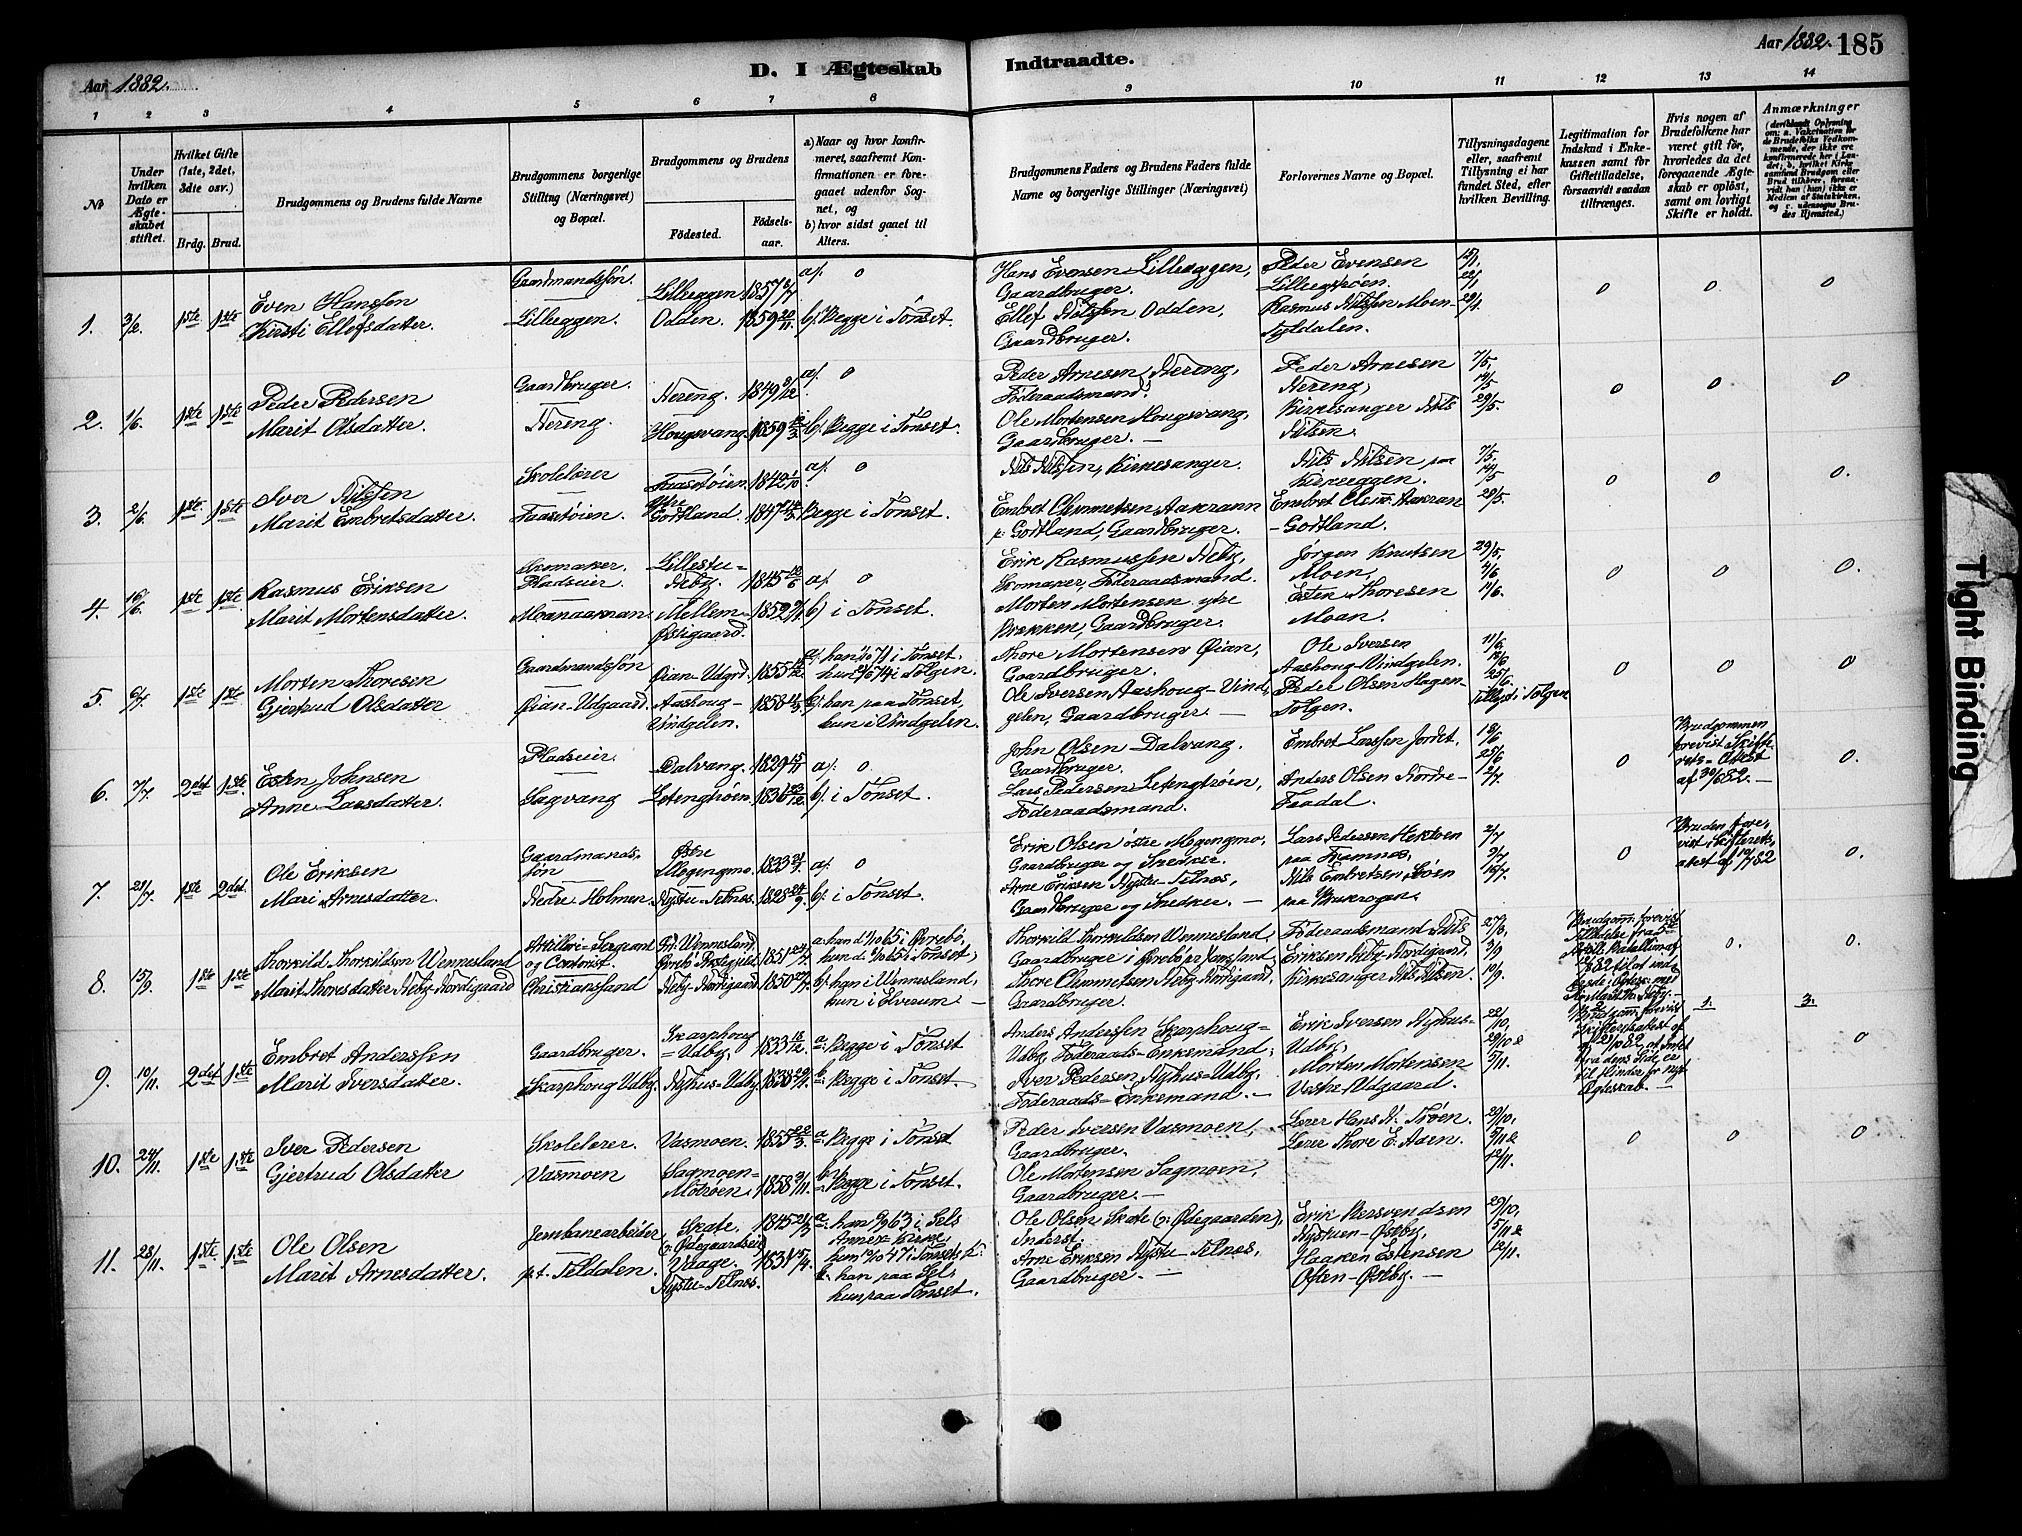 Aar 1882.
D. I Ægteskab Indtraadte.
Aar 1882. 185
1 2 3 4 5 6 7 8 9 10 11 12 13 14
No
Under hvilken Dato er Ægteskabet stiftet.
Hvilket Gifte (1ste, 2det, 3dte osv.)
Brdg. Brud.
Brudgommens og Brudens fulde Navne
Brudgommens borgerlige Stilling (Næringsvei) og Bopæl.
Brudgommens og Brudens
Födested. Födselsaar.
a) Naar og hvor konfirmeret, saafremt Konfirmationen er foregaaet udenfor Sognet, og
b) hvor sidst gaaet til Alters.
Brudgommens Faders og Brudens Faders fulde Navne og borgerlige Stillinger (Næringsvei)
Forlovernes Navne og Bopæl.
Tillysningsdagene eller, saafremt Tillysning ei har fundet Sted, efter hvilken Bevilling.
Legitimation for Indskud i Enkekassen samt for Giftetilladelse, forsaavidt saadan tiltrænges.
Hvis nogen af Brudefolkene har været gift för, hvorledes da det foregaaende Ægteskab er oplöst, samt om lovligt Skifte er holdt.
Anmærkninger
1. 3/2 1ste 1ste
Even Hanssen
Kirsti Ellefsdatter.
Gaardmandssön.
Lilleeggen.
Lilleeggen. 1857
Odden. 1859 20/11
a/. 0
b/. Begge i Tönset.
Hans Evensen Lilleeggen,
Gaardbruger.
Ellef Nilssen Odden,
Gaardbruger.
Peder Evensen
Lilleegtröen.
Rasmus Nilssen Moen
Tyldalen.
15/1.
22/1
29/1.
0 0 0
2. 1/6 1ste 1ste
Peder Pedersen
Marit Olsdatter.
Gaardbruger.
Nereng.
Nereng. 1849 9/12
Hougsvang. 1859
a/. 0
b/. Begge i Tönset.
Peder Arnesen Nereng,
Föderaadsmand.
Ole Mortensen Hougsvang,
Gaardbruger. —
Peder Arnesen
Nereng,
Kirkesanger Nils
Nilsen.
7/5,
14/5
29/5.
0 0 0
3. 2/6 1ste 1ste
Iver Nilssen
Marit Embretsdatter.
Skolelærer
Faastöien.
Faastöien. 1842
Gottland. 1847
a/. 0
Begge i Tönset.
Nils Nilssen, Kirkesanger.
Embret Clemmetsen Aakrann
p. Gottland, Gaardbruger.
Nils Nilsen paa
Kirkeeggen.
Embret Olsen Aakran
– Gottland.
7/5.
14/5
29/5.
0 0 0.
4. 16/6. 1ste 1ste
Rasmus Eriksen
Marit Mortensdatter.
Skomaker.
Pladseier.
Moenaaknan.
Lillestu-
Neby. 1845
Mellem-
Östigaard. 1852
a/. 0
b/. i Tönset.
Erik Rasmussen Neby,
Skomaker, Föderaadsmand.
Morten Mortensen ytre
Brækken, Gaardbruger.
Jörgen Knutsen
Moen,
Esten Thoresen
Moan.
29/5,
4/6
11/6.
0 0 0.
5. 6/7. 1ste 1ste
Morten Thoresen
Gjertrud Olsdatter
Gaardmandssön
Öian-Udgaard.
Öian-Udgrd. 1855
Aashoug-
Vindgelen. 1858
a/. han 71 i Tönset.
hun 74 i Tolgen.
b/. han paa Tönset,
hun i Vindgelen.
Thore Mortensen Öian,
Gaardbruger.
Ole Iversen Aashoug-Vind-
gelen, Gaardbruger. —
Ole Iversen
Aashoug-Vindgelen.
Peder Olsen Hagen-
Tolgen.
11/6
18/6
25/6.
Tillyst i Tolgen
0 0 0
6. 7/7 2det 1ste
Esten Johnsen
Anne Larsdatter.
Pladseier.
Sagvang
Dalvang. 1829 15/11
Letengtröen. 1836
a/. 0.
b/. i Tönset.
John Olsen Dalvang.
Gaardbruger.
Lars Pedersen Letengtröen,
Föderaadsmand.
Embret Larssen Jordet.
Anders Olsen Nordre-
Faadal.
18/6
25/6
2/7.
0
Brudgommen
forevist Skifte-
rets-Attest
af 30/6 82. —
0.
7. 28/7. 1ste 2det.
Ole Eriksen
Mari Arnesdatter.
Gaardmands-
sön
Nedre Holmen.
Östre
Megengmo. 1833
Nystu-Telnæs. 1828 24/9.
a/. 0
b/. i Tönset.
Erik Olsen östre Megengmo,
Gaardbruger og Snedker.
Arne Eriksen Nystu-Telnæs,
Gaardbruger og Snedker. —
Lars Pedersen Hektoen
paa Framnæs,
Nils Embretsen Söen
paa
2/7
9/7
16/7.
0
Bruden fore-
vist Skifterets-
attest af 82
0.
8. 15/9. 1ste 1ste
Thorkild Thorkildsen Wennesland
Marit Thoresdatter Neby-Nordigaard
Artilleri-Sergeant
og Contorist
Christianssand
Wennesland,
Övrebö Præstegjeld 1851
Neby-Nordigaard 1850
a: han 65 i Övrebö,
hun 65 i Tönset;
b/. han i Wennesland,
hun i Elverum —
Thorkild Thorkildsen Wennesland,
Gaardbruger i Övrebö pr Xanssand.
Thore Clemmetsen Neby-Nordigaard,
Gaardbruger.
Föderaadsmand Nils
Eriksen Neby-Nordigaard,
Kirkesanger Nils Nilsen.
27/8,
3/9
10/9.
Brudgom. forevist
Tilladelse fra 5te
Artill. Bataillon af
82 til at ind-
0. 0.
9. 10/11. 2det 1ste
Embret Anderssen
Marit Iversdatter.
Gaardbruger.
Skarphoug Udby.
Skarphoug
=Udby, 1833
Nyhus-Udby 1838
a: Begge i Tönset
b: Begge i Tönset.
Anders Anderssen Skarphoug=
Udby, Föderaads-Enkemand,
Iver Pedersen Nyhus-Udby,
Föderaads=Enkemand. —
Erik Iversen Nyhus-
Udby,
Morten Mortensen
Vestre Udgaard.
22/10,
29/10 &
5/11.
Brudgom. forevist
Skifteretsattest af
82, at intet
fra dens Side, er
til Hinder for nyt
Ægteskab. —
1. 3.
0
10. 24/11. 1ste 1ste
Iver Pedersen
Gjertrud Olsdatter
Skolelærer.
Vasmoen
Vasmoen. 1855
Sagmoen-
Motröen. 1858 9/11.
a: Begge i Tönset
b: Begge i Tönset.
Peder Iversen Vasmoen,
Gaardbruger.
Ole Mortensen Sagmoen,
Gaardbruger. —
Lærer Hans N. Tröen.
Lærer Thore E. Aaen.
29/10,
5/11 &
12/11.
0 0 0
11. 28/11. 1ste 1ste
Ole Olsen
Marit Arnesdatter.
Jernbanearbeider,
p.t. Telldalen.
Skate.
Vaage. 1845
Nystu-Telnes. 1831
a: han 63 i Sels
Annex-Kirke,
hun 47 i Tönset;
b: han paa Sel,
hun paa Tönset.
Ole Olsen Skate (v. Ödegaarden),
Inderst.
Arne Eriksen Nystu-Telnæs,
Gaardbruger. —
Erik Bersvendsen
Nystuen-Östby,
Haaken Estensen
Often-Östby. —
29/10,
5/11 &
12/11.
Tight Binding